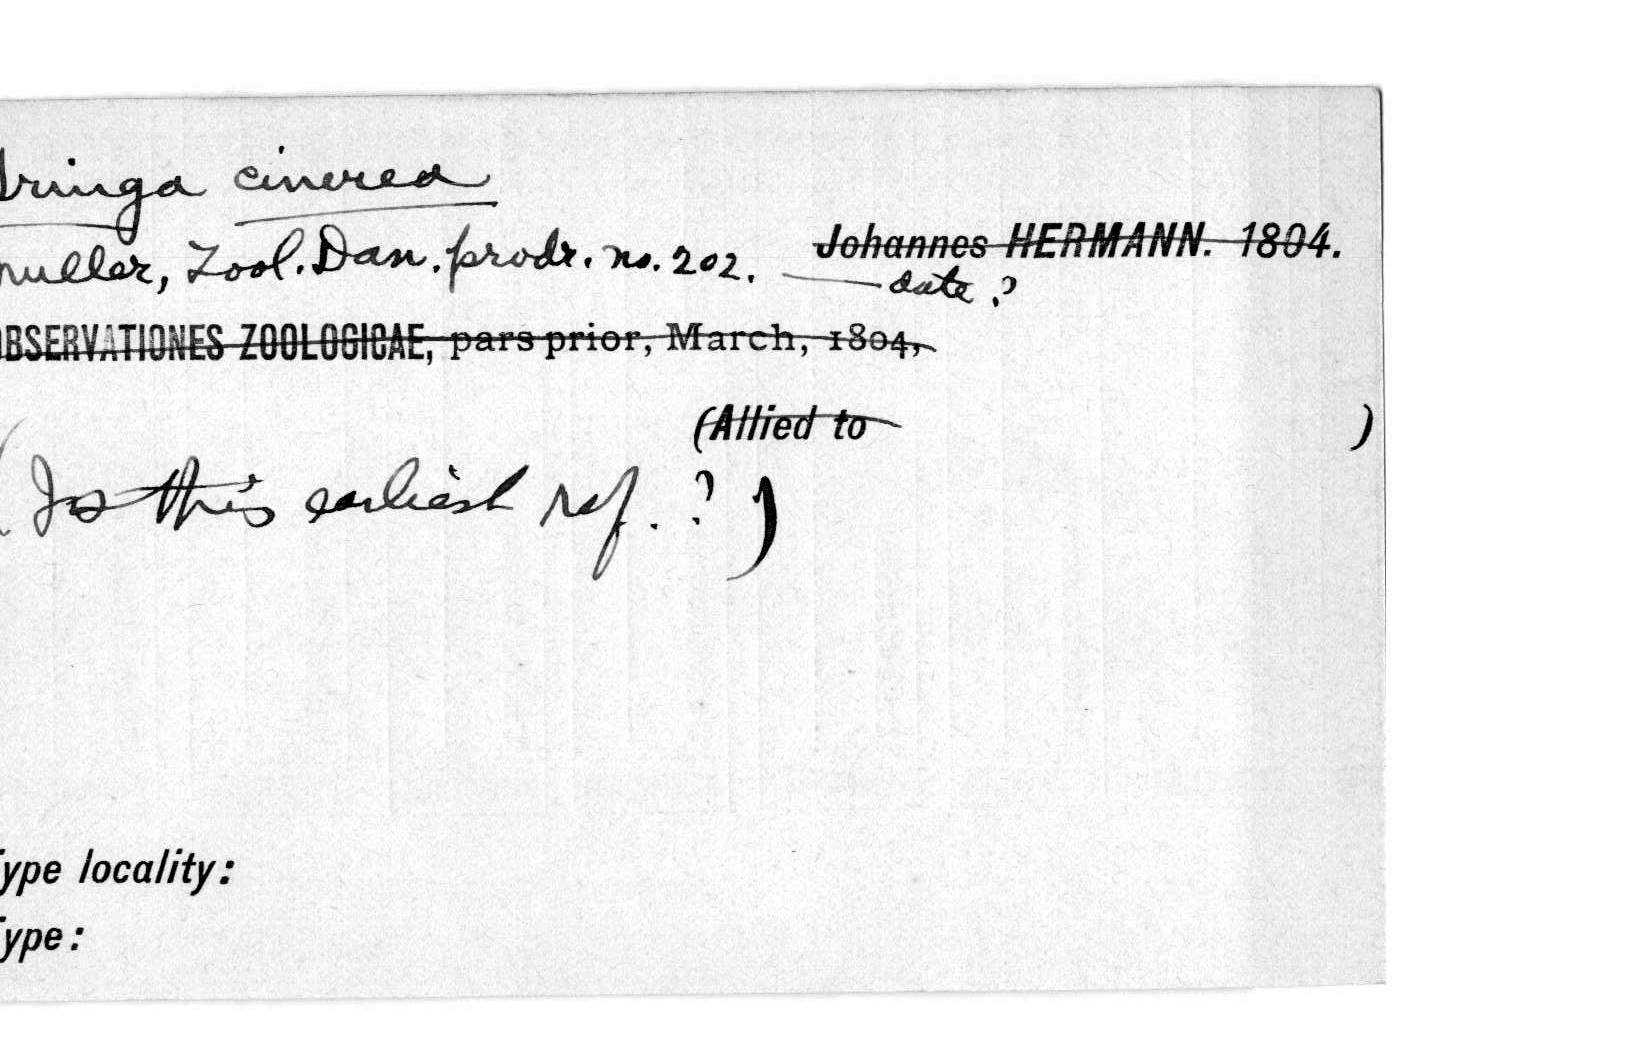 Tringa cinerea
muller, Zool. Dan. prodr. no. 202. Johannes HERMANN. 1804.
date ?
OBSERVATIONES ZOOLOGICAE, pars prior, March, 1804,
(Allied to )
( Is this earliest ref. ? )
Type locality:
Type: